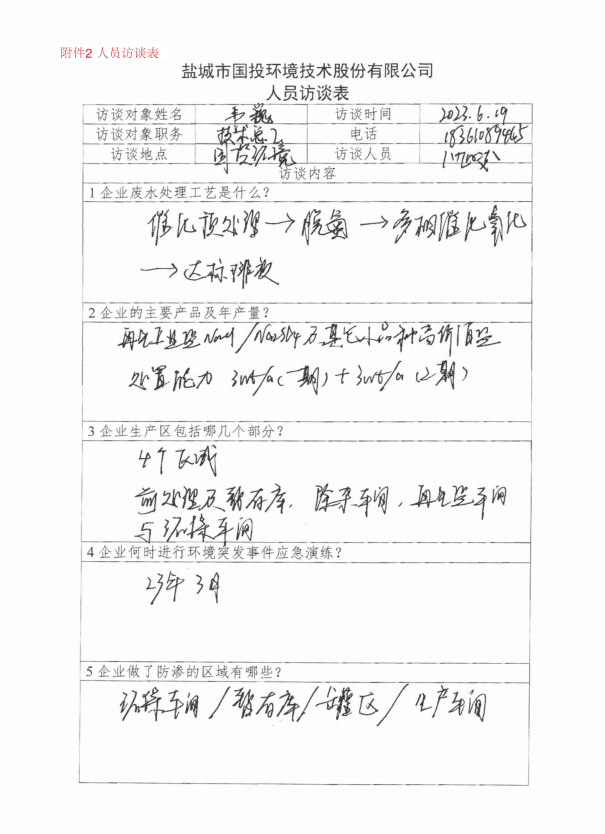 附件2 人员访谈表
盐城市国投环境技术股份有限公司
人员访谈表
访谈对象姓名 韦巍 访谈时间 2023.6.19
访谈对象职务 技术总工 电话 18361089465
访谈地点 国投环境 访谈人员
访谈内容
1企业废水处理工艺是什么?
催化预处理→脱氮→多相催化氧化
→达标排放
2企业的主要产品及年产量?
再生工业盐NaCl/Na2SO4及其它小品种高价值盐
处置能力 3wt/a(一期)+3wt/a(2期)
3企业生产区包括哪几个部分?
4个区域
前处理及暂存库、除杂车间,再生盐车间
与环操车间
4企业何时进行环境突发事件应急演练?
23年3月
5企业做了防渗的区域有哪些?
环操车间/暂存库/罐区/生产车间